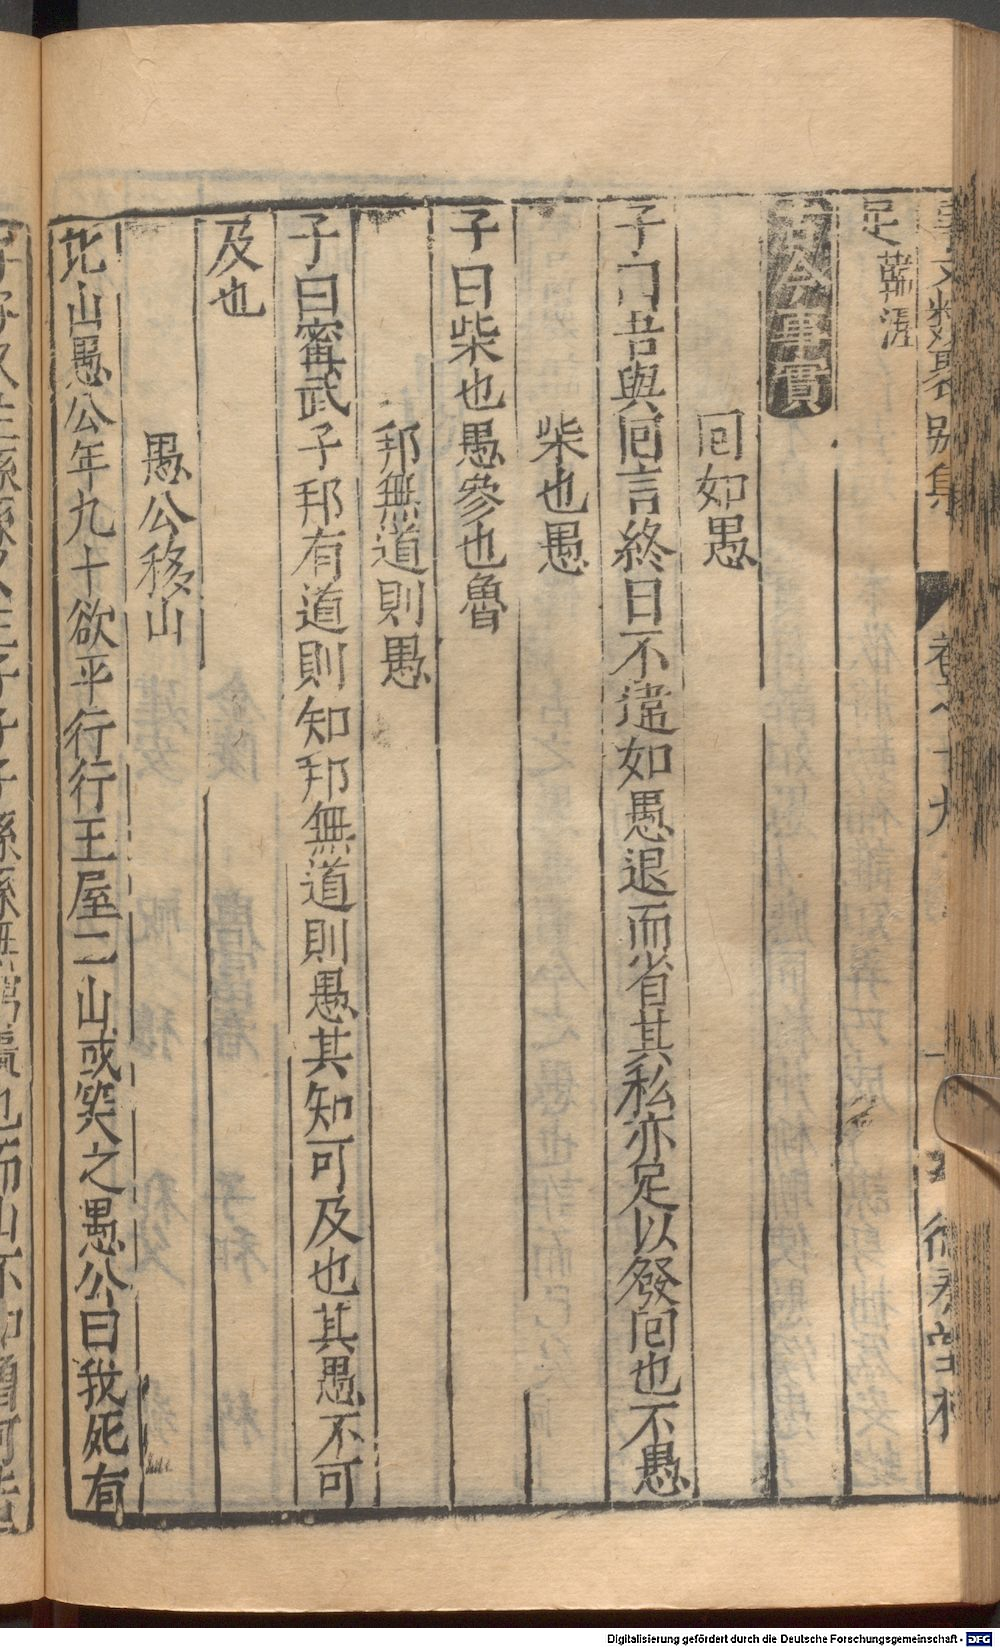 事文類聚别集 卷之十九 德寿堂梓
足 韓偓
古今事實
囘如愚
子曰吾與囘言終日不違如愚退而省其私亦足以發囘也不愚
柴也愚
子曰柴也愚參也魯
邦無道則愚
子曰甯武子邦有道則知邦無道則愚其知可及也其愚不可
及也
愚公移山
北山愚公年九十欲平行行王屋二山或笑之愚公曰我死有
子子又生孫孫又生子子子孫孫無窮匱也而山不加增何苦
Digitalisierung gefördert durch die Deutsche Forschungsgemeinschaft - DFG